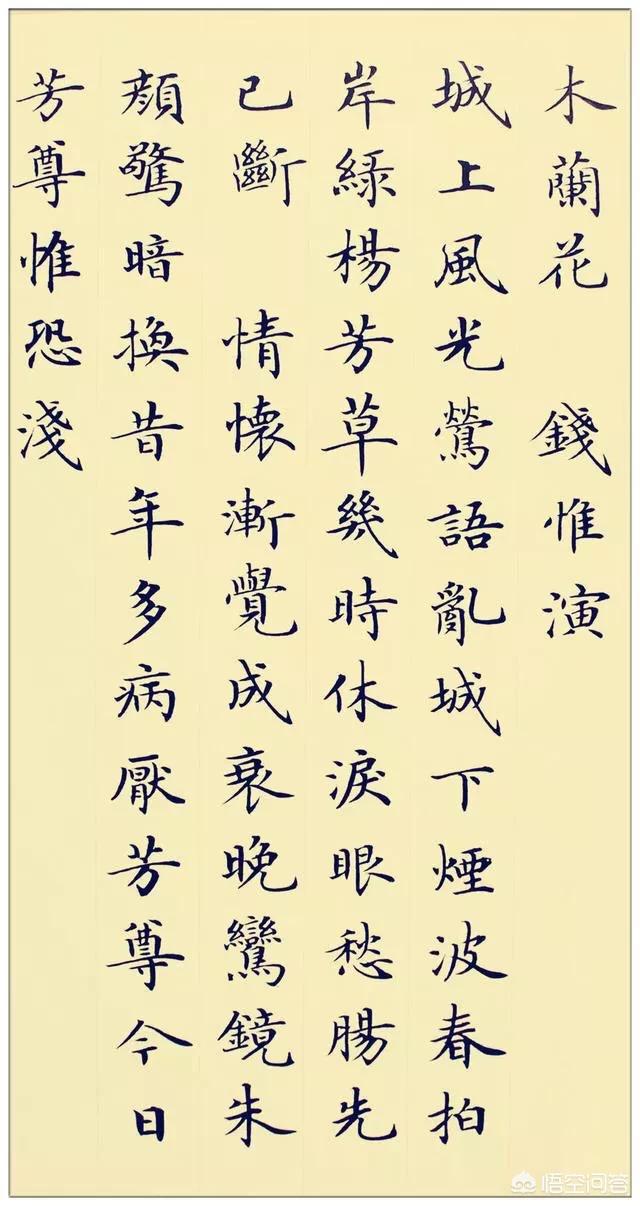 木蘭花 錢惟演
城上風光鶯語亂城下煙波春拍
岸綠楊芳草幾時休淚眼愁腸先
已斷 情懷漸覺成衰晚鸞鏡朱
顏驚暗換昔年多病厭芳尊今日
芳尊惟恐淺
悟空问答